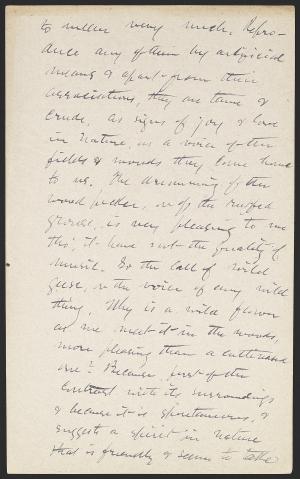 to mean very much. Repro-
duce any of them by artificial
means & apart from their
associations, they are tame &
crude, as signs of joy & love
in nature, as a voice of the
fields & woods they come home
to us. The drumming of the
wood pecker, or of the ruffed
grouse, is very pleasing to me
tho' it have not the quality of
music. So the call of wild
geese, or the voice of any wild
thing. Why is a wild flower
as we meet it in the woods,
more pleasing than a cultivated
one? Because, first of the
Contrast with its surroundings
& because it is spontaneous, &
suggests a spirit in nature
that is friendly & seems to take